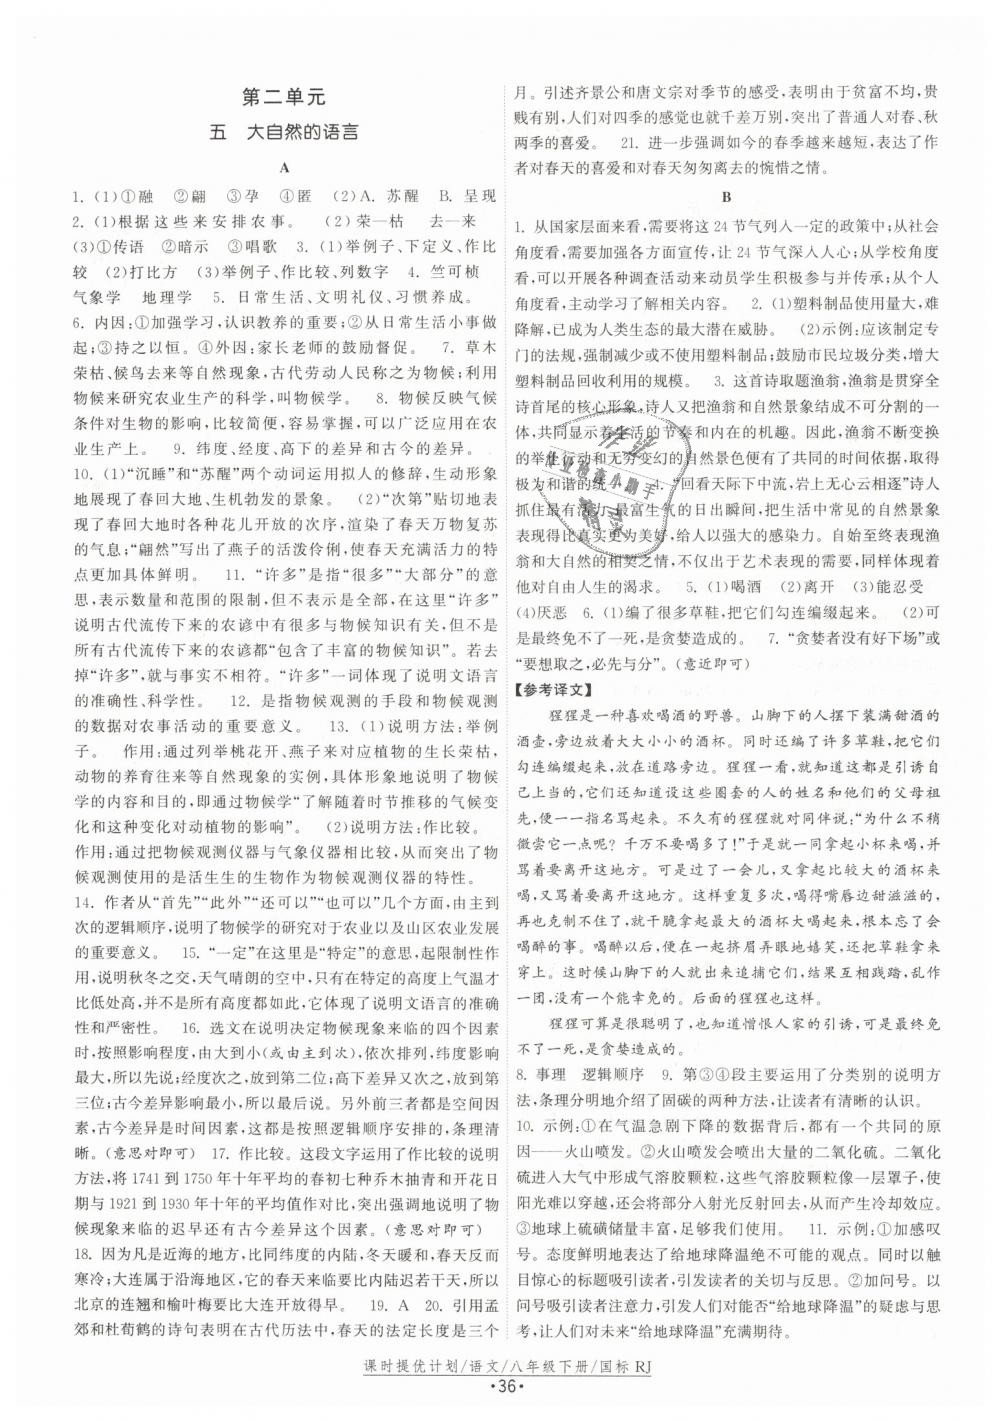 第二单元
五　大自然的语言
A
1. (1)①融　②翩　③孕　④匿　(2)A. 苏醒　B. 呈现
2. (1)根据这些来安排农事。　(2)荣—枯　去—来
(3)①传语　②暗示　③唱歌　3. (1)举例子、下定义、作比
较　(2)打比方　(3)举例子、作比较、列数字　4. 竺可桢
气象学　地理学　5. 日常生活、文明礼仪、习惯养成。
6. 内因:①加强学习,认识教养的重要;②从日常生活小事做
起;③持之以恒。④外因:家长老师的鼓励督促。　7. 草木
荣枯、候鸟去来等自然现象,古代劳动人民称之为物候;利用
物候来研究农业生产的科学,叫物候学。　8. 物候反映气候
条件对生物的影响,比较简便,容易掌握,可以广泛应用在农
业生产上。　9. 纬度、经度、高下的差异和古今的差异。
10. (1)“沉睡”和“苏醒”两个动词运用拟人的修辞,生动形象
地展现了春回大地、生机勃发的景象。　(2)“次第”贴切地表
现了春回大地时各种花儿开放的次序,渲染了春天万物复苏
的气息;“翩然”写出了燕子的活泼伶俐,使春天充满活力的特
点更加具体鲜明。　11. “许多”是指“很多”“大部分”的意
思,表示数量和范围的限制,但不表示是全部,在这里“许多”
说明古代流传下来的农谚中有很多与物候知识有关,但不是
所有古代流传下来的农谚都“包含了丰富的物候知识”。若去
掉“许多”,就与事实不相符。“许多”一词体现了说明文语言
的准确性、科学性。　12. 是指物候观测的手段和物候观测
的数据对农事活动的重要意义。　13. (1)说明方法:举例
子。　作用:通过列举桃花开、燕子来对应植物的生长荣枯,
动物的养育往来等自然现象的实例,具体形象地说明了物候
学的内容和目的,即通过物候学“了解随着时节推移的气候变
化和这种变化对动植物的影响”。　(2)说明方法:作比较。
作用:通过把物候观测仪器与气象仪器相比较,从而突出了物
候观测使用的是活生生的生物作为物候观测仪器的特性。
14. 作者从“首先”“此外”“还可以”“也可以”几个方面,由主到
次的逻辑顺序,说明了物候学的研究对于农业以及山区农业发展
的重要意义。　15. “一定”在这里是“特定”的意思,起限制性作
用,说明秋冬之交,天气晴朗的空中,只有在特定的高度上气温才
比低处高,并不是所有高度都如此,它体现了说明文语言的准确
性和严密性。　16. 选文在说明决定物候现象来临的四个因素
时,按照影响程度,由大到小(或由主到次),依次排列,纬度影响
最大,所以先说;经度次之,放到第二位;高下差异又次之,放到第
三位;古今差异影响最小,所以最后说。另外前三者都是空间因
素,古今差异是时间因素,这都是按照逻辑顺序安排的,条理清
晰。(意思对即可)　17. 作比较。这段文字运用了作比较的说明
方法,将 1741 到 1750 年十年平均的春初七种乔木抽青和开花日
期与 1921 到 1930 年十年的平均值作对比,突出强调地说明了物
候现象来临的迟早还有古今差异这个因素。(意思对即可)
18. 因为凡是近海的地方,比同纬度的内陆,冬天暖和,春天反而
寒冷;大连属于沿海地区,它的春天来临要比内陆迟一些,所以
北京的连翘和榆叶梅要比大连开放得早。　19. A　20. 引用孟
郊和杜荀鹤的诗句表明在古代历法中,春天的法定长度是三个
月。引述齐景公和唐文宗对季节的感受,表明由于贫富不均,贵
贱有别,人们对四季的感觉也就千差万别,突出了普通人对春、秋
两季的喜爱。　21. 进一步强调如今的春季越来越短,表达了作
者对春天的喜爱和对春天匆匆离去的惋惜之情。
B
1. 从国家层面来看,需要将这 24 节气列入一定的政策中;从社会
角度看,需要加强各方面宣传,让 24 节气深入人心;从学校角度
看,可以开展各种调查活动来动员学生积极参与并传承;从个人
角度看,主动学习了解相关内容。　2. (1)塑料制品使用量大,难
降解,已成为人类生态的最大潜在威胁。　(2)示例:应该制定专
门的法规,强制减少或不使用塑料制品;鼓励市民垃圾分类,增大
塑料制品回收利用的规模。　3. 这首诗取题渔翁,渔翁是贯穿全
诗首尾的核心形象,诗人又把渔翁和自然景象结成不可分割的一
体,共同显示着生活的节奏和内在的机趣。因此,渔翁不断变换
的举止行动和无穷变幻的自然景色便有了共同的时间依据,取得
极为和谐的统一。　4. “回看天际下中流,岩上无心云相逐”诗人
抓住最有活力、最富生气的日出瞬间,把生活中常见的自然景象
表现得比真实更为美好,给人以强大的感染力。自始至终表现渔
翁和大自然的相契之情,不仅出于艺术表现的需要,同样体现着
他对自由人生的渴求。　5. (1)喝酒　(2)离开　(3)能忍受
(4)厌恶　6. (1)编了很多草鞋,把它们勾连编缀起来。　(2)可
是最终免不了一死,是贪婪造成的。　7. “贪婪者没有好下场”或
“要想取之,必先与分”。(意近即可)
【参考译文】
猩猩是一种喜欢喝酒的野兽。山脚下的人摆下装满甜酒的
酒壶,旁边放着大大小小的酒杯。同时还编了许多草鞋,把它们
勾连编缀起来,放在道路旁边。猩猩一看,就知道这都是引诱自
己上当的,它们还知道设这些圈套的人的姓名和他们的父母祖
先,便一一指名骂起来。不久有的猩猩就对同伴说:“为什么不稍
微尝它一点呢? 千万不要喝多了!”于是就一同拿起小杯来喝,并
骂着要离开这地方。可是过了一会儿,又拿起比较大的酒杯来
喝,又骂着要离开这地方。这样重复多次,喝得嘴唇边甜滋滋的,
再也克制不住了,就干脆拿起最大的酒杯大喝起来,根本忘了会
喝醉的事。喝醉以后,便在一起挤眉弄眼地嬉笑,还把草鞋拿来
穿上。这时候山脚下的人就出来追捕它们,结果互相践踏,乱作
一团,没有一个能幸免的。后面的猩猩也这样。
猩猩可算是很聪明了,也知道憎恨人家的引诱,可是最终免
不了一死,是贪婪造成的。
8. 事理　逻辑顺序　9. 第③④段主要运用了分类别的说明方
法,条理分明地介绍了固碳的两种方法,让读者有清晰的认识。
10. 示例:①在气温急剧下降的数据背后,都有一个共同的原
因——火山喷发。②火山喷发会喷出大量的二氧化硫。二氧化
硫进入大气中形成气溶胶颗粒,这些气溶胶颗粒像一层罩子,使
阳光难以穿越,还会将部分入射光反射回去,从而产生冷却效应。
③地球上硫磺储量丰富,足够我们使用。　11. 示例:①加感叹
号。态度鲜明地表达了给地球降温绝不可能的观点。同时以触
目惊心的标题吸引读者,引发读者的关切与反思。②加问号。以
问号吸引读者注意力,引发人们对能否“给地球降温”的疑虑与思
考,让人们对未来“给地球降温”充满期待。
课时提优计划/语文/八年级下册/国标 RJ
·36·